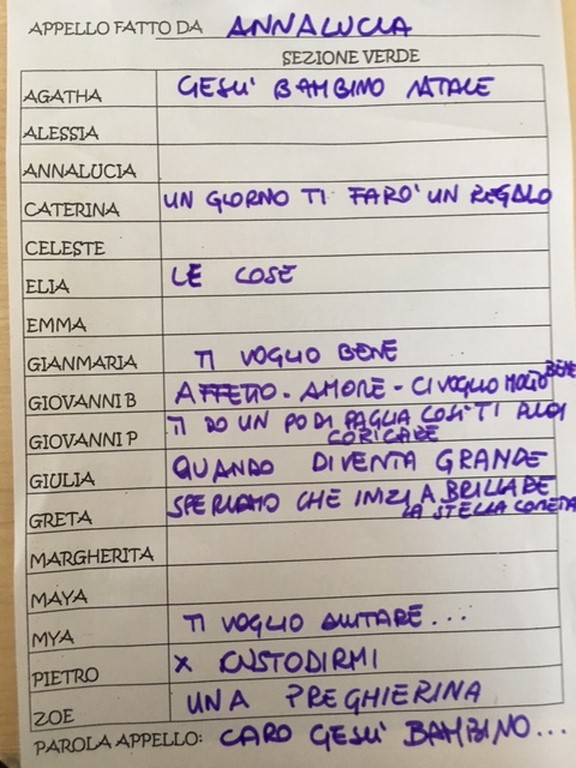 APPELLO FATTO DA ANNALUCIA
SEZIONE VERDE
AGATHA GESU' BAMBINO NATALE
ALESSIA
ANNALUCIA
CATERINA UN GIORNO TI FARO' UN REGALO
CELESTE
ELIA LE COSE
EMMA
GIANMARIA TI VOGLIO BENE
GIOVANNI B AFFETTO - AMORE - CI VOGLIO MOLTO BENE
GIOVANNI P TI DO UN PO DI PAGLIA COSI' TI PUOI
CORICARE
GIULIA QUANDO DIVENTA GRANDE
GRETA SPERIAMO CHE INIZI A BRILLARE
LA STELLA COMETA
MARGHERITA
MAYA
MYA TI VOGLIO AIUTARE...
PIETRO X CUSTODIRMI
ZOE UNA PREGHIERINA
PAROLA APPELLO: CARO GESU' BAMBINO...